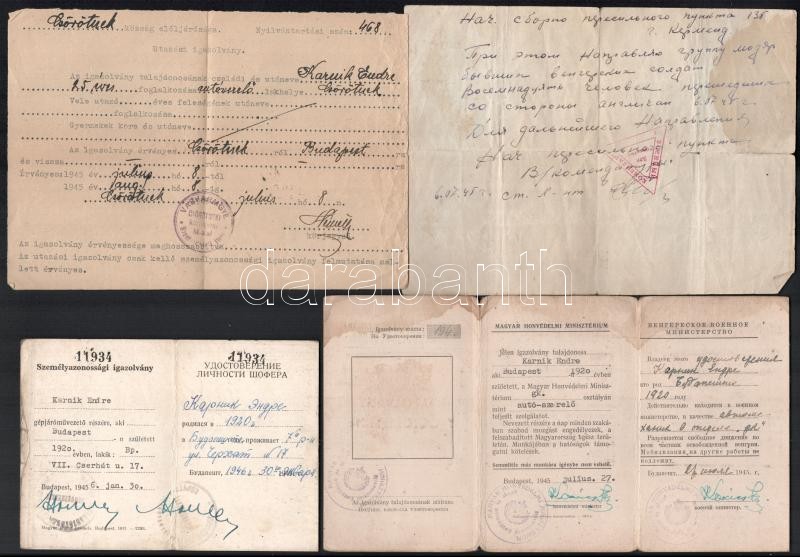 Csörötnek község elöljárósága. Nyilvántartási szám: 468
Utazási igazolvány.
Az igazolvány tulajdonosának családi és utóneve Karnik Endre
25 éves foglalkozása autószerelő lakhelye Csörötnek
Vele utazó éves feleségének utóneve
foglalkozása
Gyermekek kora és utóneve
Az igazolvány érvényes Csörötnek -ről Budapest -ra
és vissza
Érvényes 1945 év július hó 8 -tól
1945 év aug. hó 8 -ig
Csörötnek július hó 8 n.
Németh
Az igazolvány érvényessége meghosszabbítva
Az utazási igazolvány csak kellő személyazonossági igazolvány felmutatása mel-
lett érvényes.
Нач. сборно пересыльного пункта 135
г. Керменд
При этом направляю группу мадяр
бывших венгерских солдат
Восемнадцать человек перешедших
со стороны англичан 6.07.45 г.
Для дальнейшего направления
Нач пересыльно пункта
6.07.45 г. ст. л-нт
darabanth
11934 11934
Személyazonossági igazolvány
Karnik Endre
gépjárművezető részére, aki
Budapest n született
1920. évben, lakik: Bp.
VII. Cserhát u. 17.
Budapest, 1946 jan. 30.
УДОСТОВЕРЕНИЕ
ЛИЧНОСТИ ШОФЕРА
Карник Эндре
родился в
1920 г.
Будапеште, проживает 7 р-н
ул. Серхат u 17
Будапешт, 1946 г. 30 января
Igazolvány száma:
No Удостоверения: 194
Az igazolvány tulajdonosának aláírása
Подпись владельца удостоверения
MAGYAR HONVÉDELMI MINISZTÉRIUM
Jelen igazolvány tulajdonosa
Karnik Endre
aki Budapest 1920 évben
született, a Magyar Honvédelmi Minisz-
térium gk. osztályán
autó-szerelő
teljesít szolgálatot.
Nevezett részére a nap minden szaká-
ban szabad mozgást engedélyezek, a
felszabadított Magyarország egész terü-
letén. Munkájában a hatóságok támogatni
kötelesek.
Semmiféle más munkára igénybe nem vehető.
Budapest, 1945 július 27.
ВЕНГЕРСКОЕ ВОЕННОЕ
МИНИСТЕРСТВО
Владелец этого удостоверения
Карник Эндре
кто род. Будапешт
1920 году
Действительно находится в военном
министерстве, в качестве автоме-
ханик в отделе
Разрешается свободное движение по
всей освобожденной венгрии.
Мобилизация, на другие работы не
подлежит.
Будапешт, 27 июля 1945 г.
военый министр.